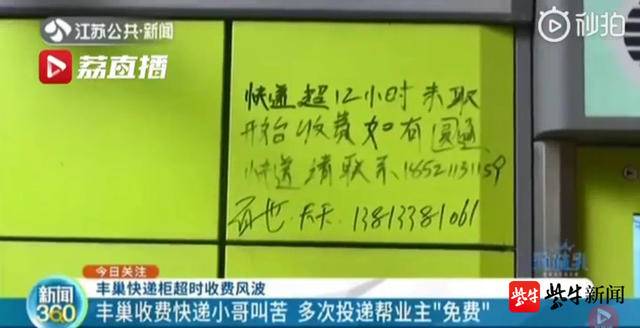 江苏公共·新闻
荔直播
秒拍
快递超12小时未取
开始收费如有圆通
快递请联系18521131159
百世.天天.13813381061
今日关注
丰巢快递柜超时收费风波
新闻360
丰巢收费快递小哥叫苦 多次投递帮业主"免费"
紫牛
紫牛新闻